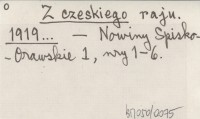 o
Z czeskiego raju.
1919... — Nowiny Spisko-
-Orawskie 1, nry 1-6.